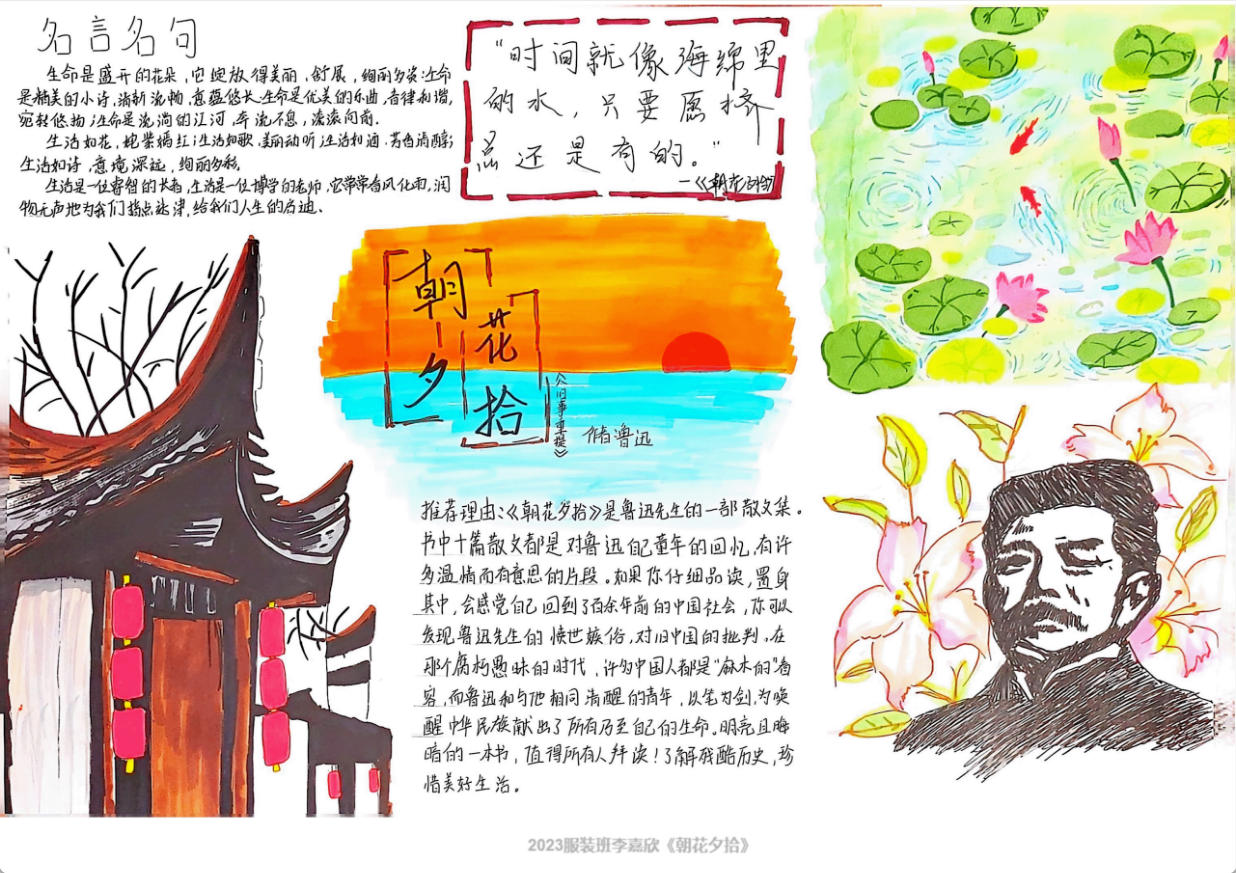 名言名句
生命是盛开的花朵，它绽放得美丽，舒展，绚丽多姿；生命
是精美的小诗，清新流畅，意蕴悠长；生命是优美的乐曲，音律和谐，
宛转悠扬；生命是流淌的江河，奔流不息，滚滚向前。
生活如花，姹紫嫣红；生活如歌，美丽动听；生活如酒，芳香清醇；
生活如诗，意境深远，绚丽多彩。
生活是一位睿智的长者，生活是一位博学的老师，它常常春风化雨，润
物无声地为我们指点迷津，给我们人生的启迪、
“时间就像海绵里
的水，只要愿挤
总还是有的。”
—《朝花夕拾》
朝花夕拾
《旧事重提》
作者鲁迅
推荐理由：《朝花夕拾》是鲁迅先生的一部散文集。
书中十篇散文都是对鲁迅自己童年的回忆，有许
多温情而有意思的片段。如果你仔细品读，置身
其中，会感觉自己回到了百余年前的中国社会，你可以
发现鲁迅先生的愤世嫉俗，对旧中国的批判，在
那个腐朽愚昧的时代，许多中国人都是“麻木的”看
客，而鲁迅和与他相同清醒的青年，以笔为剑，为唤
醒中华民族献出了所有乃至自己的生命。明亮且晦
暗的一本书，值得所有人拜读！了解残酷历史，珍
惜美好生活。
2023服装班李嘉欣《朝花夕拾》